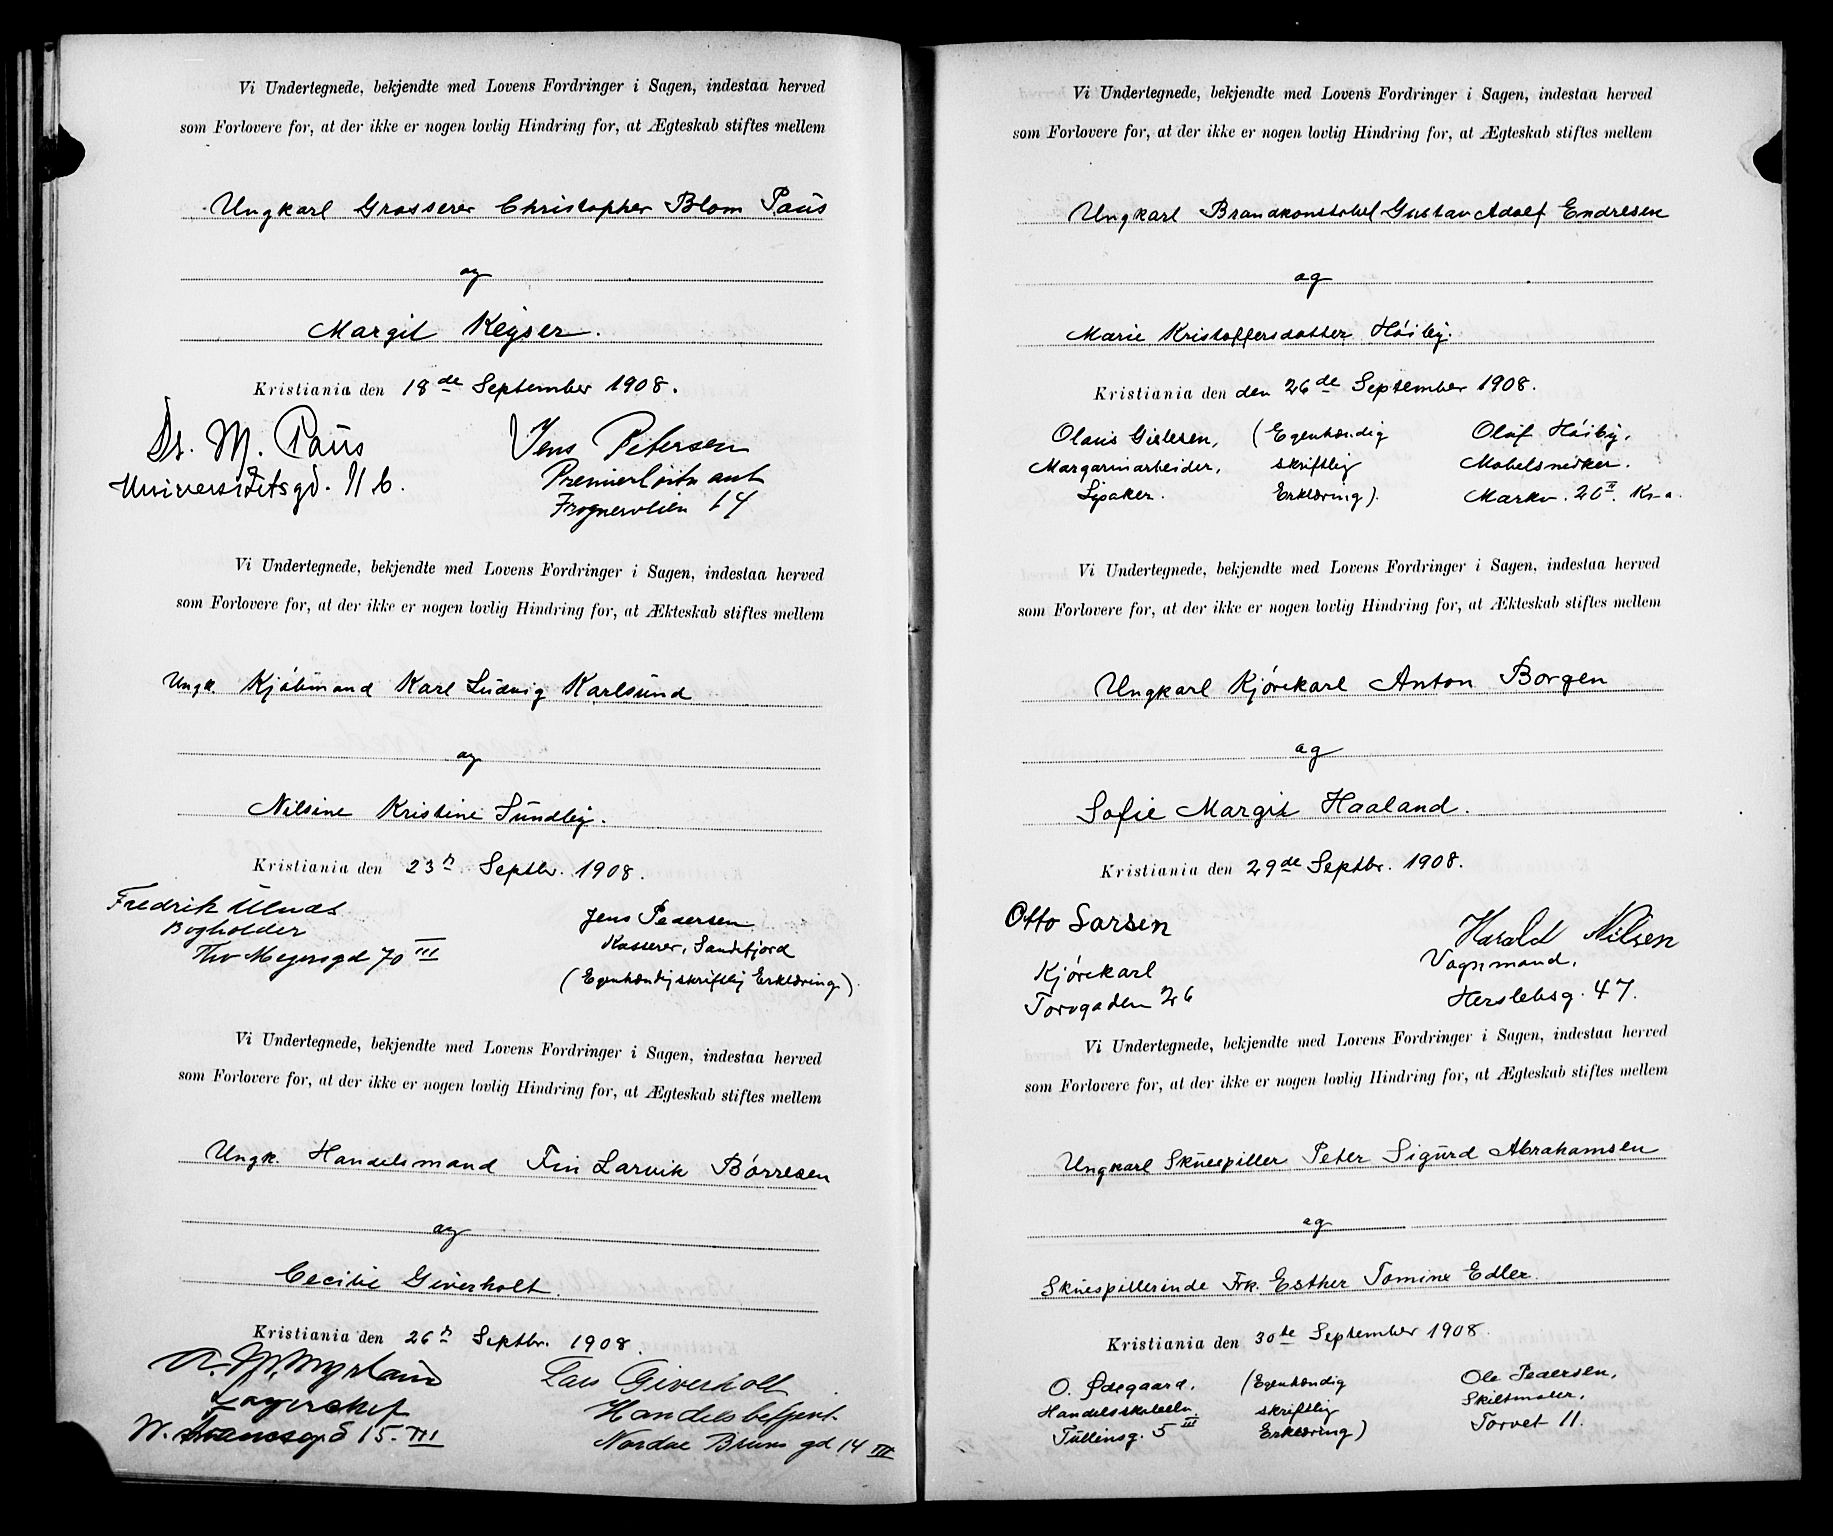 Vi Undertegnede, bekjendte med Lovens Fordringer i Sagen, indestaa herved
som Forlovere for, at der ikke er nogen lovlig Hindring for, at Ægteskab stiftes mellem
Ungkarl Grosserer Christopher Blom Paus
og
Margit Keyser.
Kristiania den 18de September 1908.
Dr. M. Paus
Jens Petersen
Universitetsgd. 11 b.
Premierløitnant
Frognerveien 14
Vi Undertegnede, bekjendte med Lovens Fordringer i Sagen, indestaa herved
som Forlovere for, at der ikke er nogen lovlig Hindring for, at Ækteskab stiftes mellem
Ungk. Kjøbmand Karl Ludvig Karlsund
og
Nilsine Kristine Sundby.
Kristiania den 23de Septbr. 1908.
Fredrik Ulnæs
Bogholder
Thv Meyersgd 70 III
Jens Pedersen
Kasserer, Sandefjord
(Egenhændig skriftlig Erklæring).
Vi Undertegnede, bekjendte med Lovens Fordringer i Sagen, indestaa herved
som Forlovere for, at der ikke er nogen lovlig Hindring for, at Ægteskab stiftes mellem
Ungk. Handelsmand Fin Larvik Børresen
og
Cecilie Giverholt.
Kristiania den 26de Septbr. 1908.
Myrland
Lagerchef
15. III
Lars Giverholt
Handelsbetjent.
Nordae Bruns gd 14 III
Vi Undertegnede, bekjendte med Lovens Fordringer i Sagen, indestaa herved
som Forlovere for, at der ikke er nogen lovlig Hindring for, at Ægteskab stiftes mellem
Ungkarl Brandkonstabel Gustav Adolf Endresen
og
Marie Kristoffersdatter Høiby.
Kristiania den den 26de September 1908.
Olaus Gislesen, (Egenhændig Olaf Høiby,
Margarinarbeider, skriftlig Møbelsnedker.
Lysaker. Erklæring). Markv. 20 II. Kr-a.
Vi Undertegnede, bekjendte med Lovens Fordringer i Sagen, indestaa herved
som Forlovere for, at der ikke er nogen lovlig Hindring for, at Ækteskab stiftes mellem
Ungkarl Kjørekarl Anton Borgen
og
Sofie Margit Haaland.
Kristiania den 29de Septbr. 1908.
Otto Larsen
Kjørekarl
Torvgaden 26
Harald Nilsen
Vognmand,
Herslebsg. 47.
Vi Undertegnede, bekjendte med Lovens Fordringer i Sagen, indestaa herved
som Forlovere for, at der ikke er nogen lovlig Hindring for, at Ægteskab stiftes mellem
Ungkarl Skuespiller Peter Sigurd Abrahamsen
og
Skuespillerinde Frk. Esther Tomine Edler.
Kristiania den 30te September 1908.
O. Ødegaard. (Egenhændig Ole Pedersen,
skriftlig Skiltmaler,
Tullinsg. 5 III Erklæring) Torvet 11.